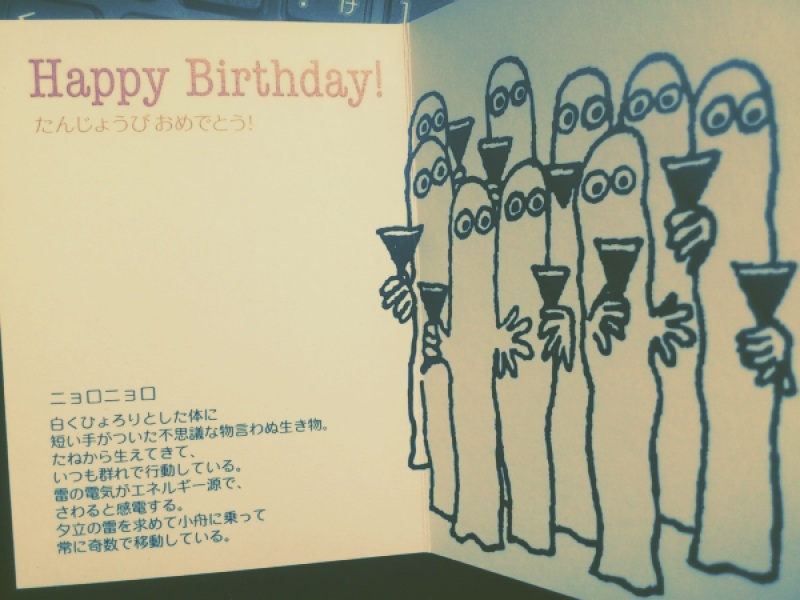 け
Happy Birthday!
たんじょうび おめでとう!
ニョロニョロ
白くひょろりとした体に
短い手がついた不思議な物言わぬ生き物。
たねから生えてきて、
いつも群れで行動している。
雷の電気がエネルギー源で、
さわると感電する。
夕立の雷を求めて小舟に乗って
常に奇数で移動している。